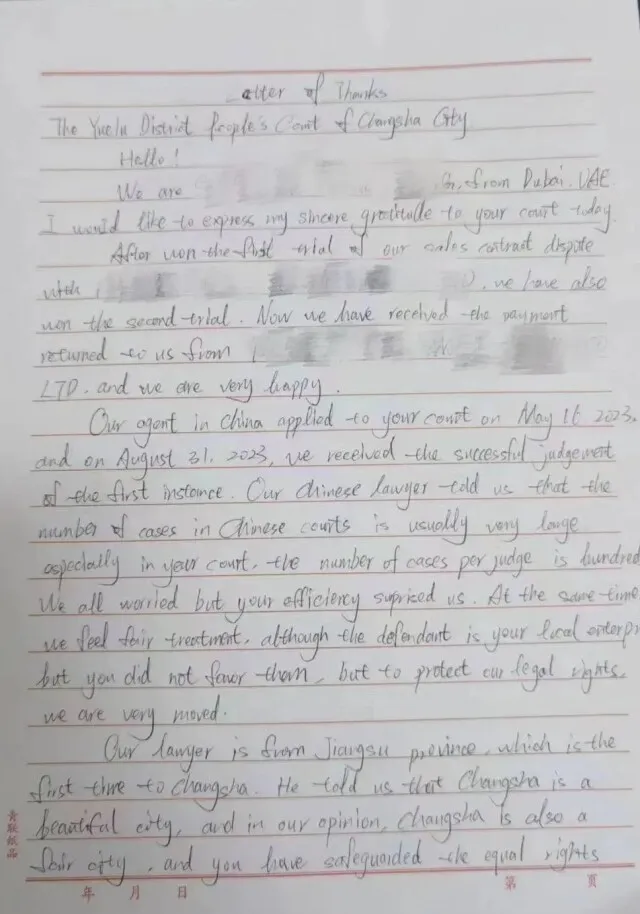 Letter of Thanks
The Yuelu District People's Court of Changsha City
Hello!
We are from Dubai. UAE
I would like to express my sincore gratitude to your court today.
After won the first trial of our sales contract dispute
with ), we have also
won the second trial. Now we have received the payment
returned to us from (
LTD. and we are very happy.
Our agent in China applied to your court on May 16 2023,
and on August 31. 2023, we received the successful judgement
of the first instance. Our Chinese lawyer told us that the
number of cases in Chinese courts is usually very large
aspecially in your court, the number of cases per judge is hundred
We all worried but your efficiency suprised us. At the same time
we feel fair treatment, although the defendant is your local enterpr
but you did not favor them, but to protect our legal rights.
we are very moved.
Our lawyer is from Jiangsu province, which is the
first time to Changsha. He told us that Changsha is a
beautiful city, and in our opinion, Changsha is also a
fair city, and you have safeguarded the equal rights
青联纸品
年 月 日 第 页